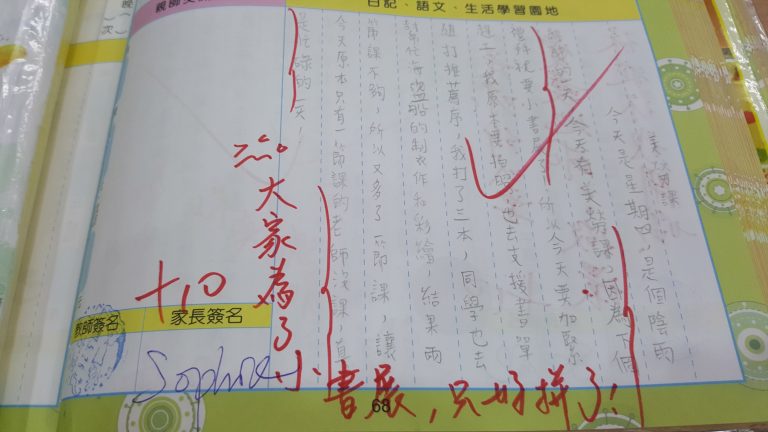 日記、語文、生活學習園地
美勞課
今天是星期四,是個陰雨
的一天,今天有美勞課,因為下個
禮拜就要小書展了,所以今天要加緊
趕工,我原本要拍照,也去支援書單
打推薦序,我打了三本,同學也去
幫忙海盜船的制衣作和彩繪,結果兩
節課不夠,所以又多了一節課,讓
今天原本只有一節課的老師沒課,真
是忙碌的一天,
大家為了小
書展,只好拼了!
+10
教師簽名
家長簽名
Sophie
68